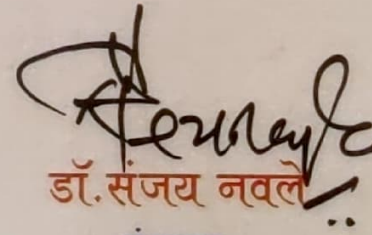 डॉ. संजय नवले